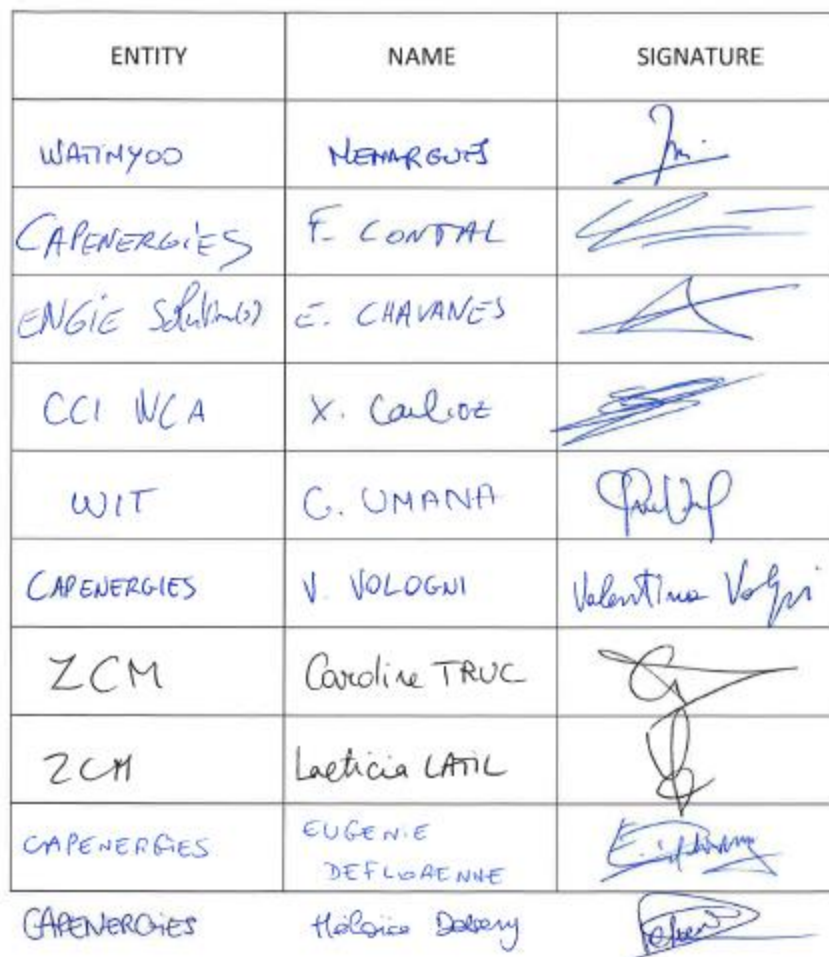 ENTITY NAME SIGNATURE
WATTMYOO NEMARGUES
CAPENERGIES F. CONTAL
ENGIE Solution(s) E. CHAVANES
CCI NCA X. Carlioz
WIT G. UMANA
CAPENERGIES V. VOLOGNI Valentina Vologni
ZCM Caroline TRUC
ZCM Laeticia LATIL
CAPENERGIES EUGENIE
DEFLORENNE
CAPENERGIES Héloïse